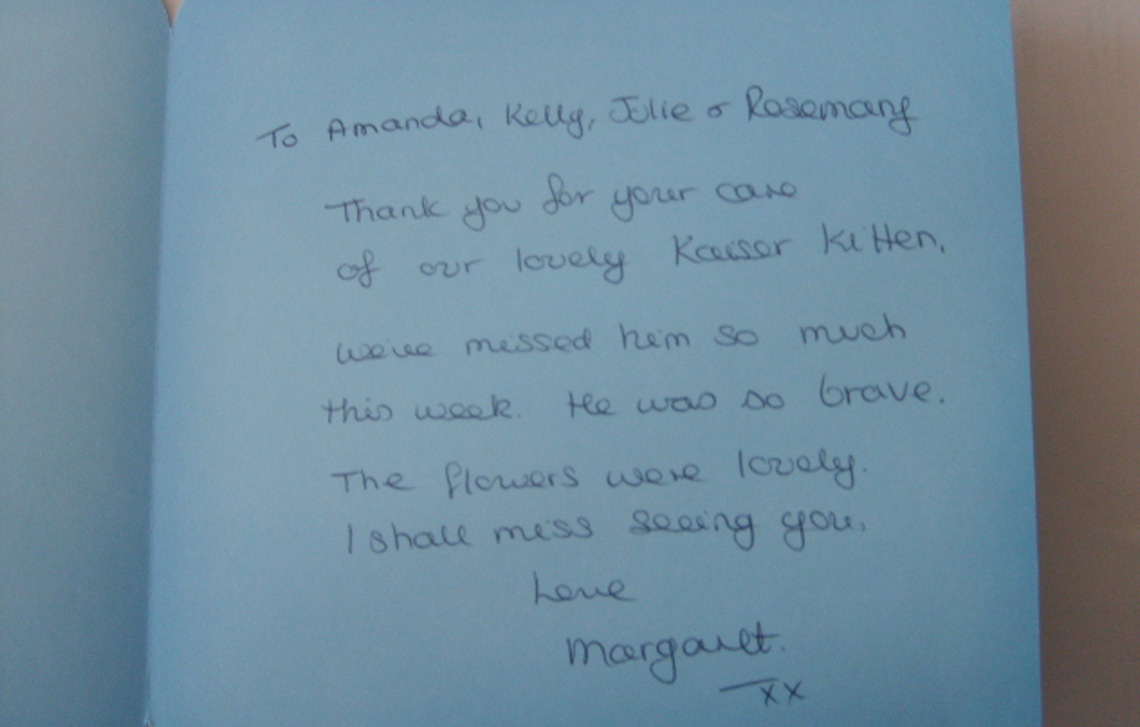 To Amanda, Kelly, Julie & Rosemary
Thank you for your care
of our lovely Kaiser Kitten.
We've missed him so much
this week. He was so brave.
The flowers were lovely.
I shall miss seeing you.
Love
Margaret.
xx